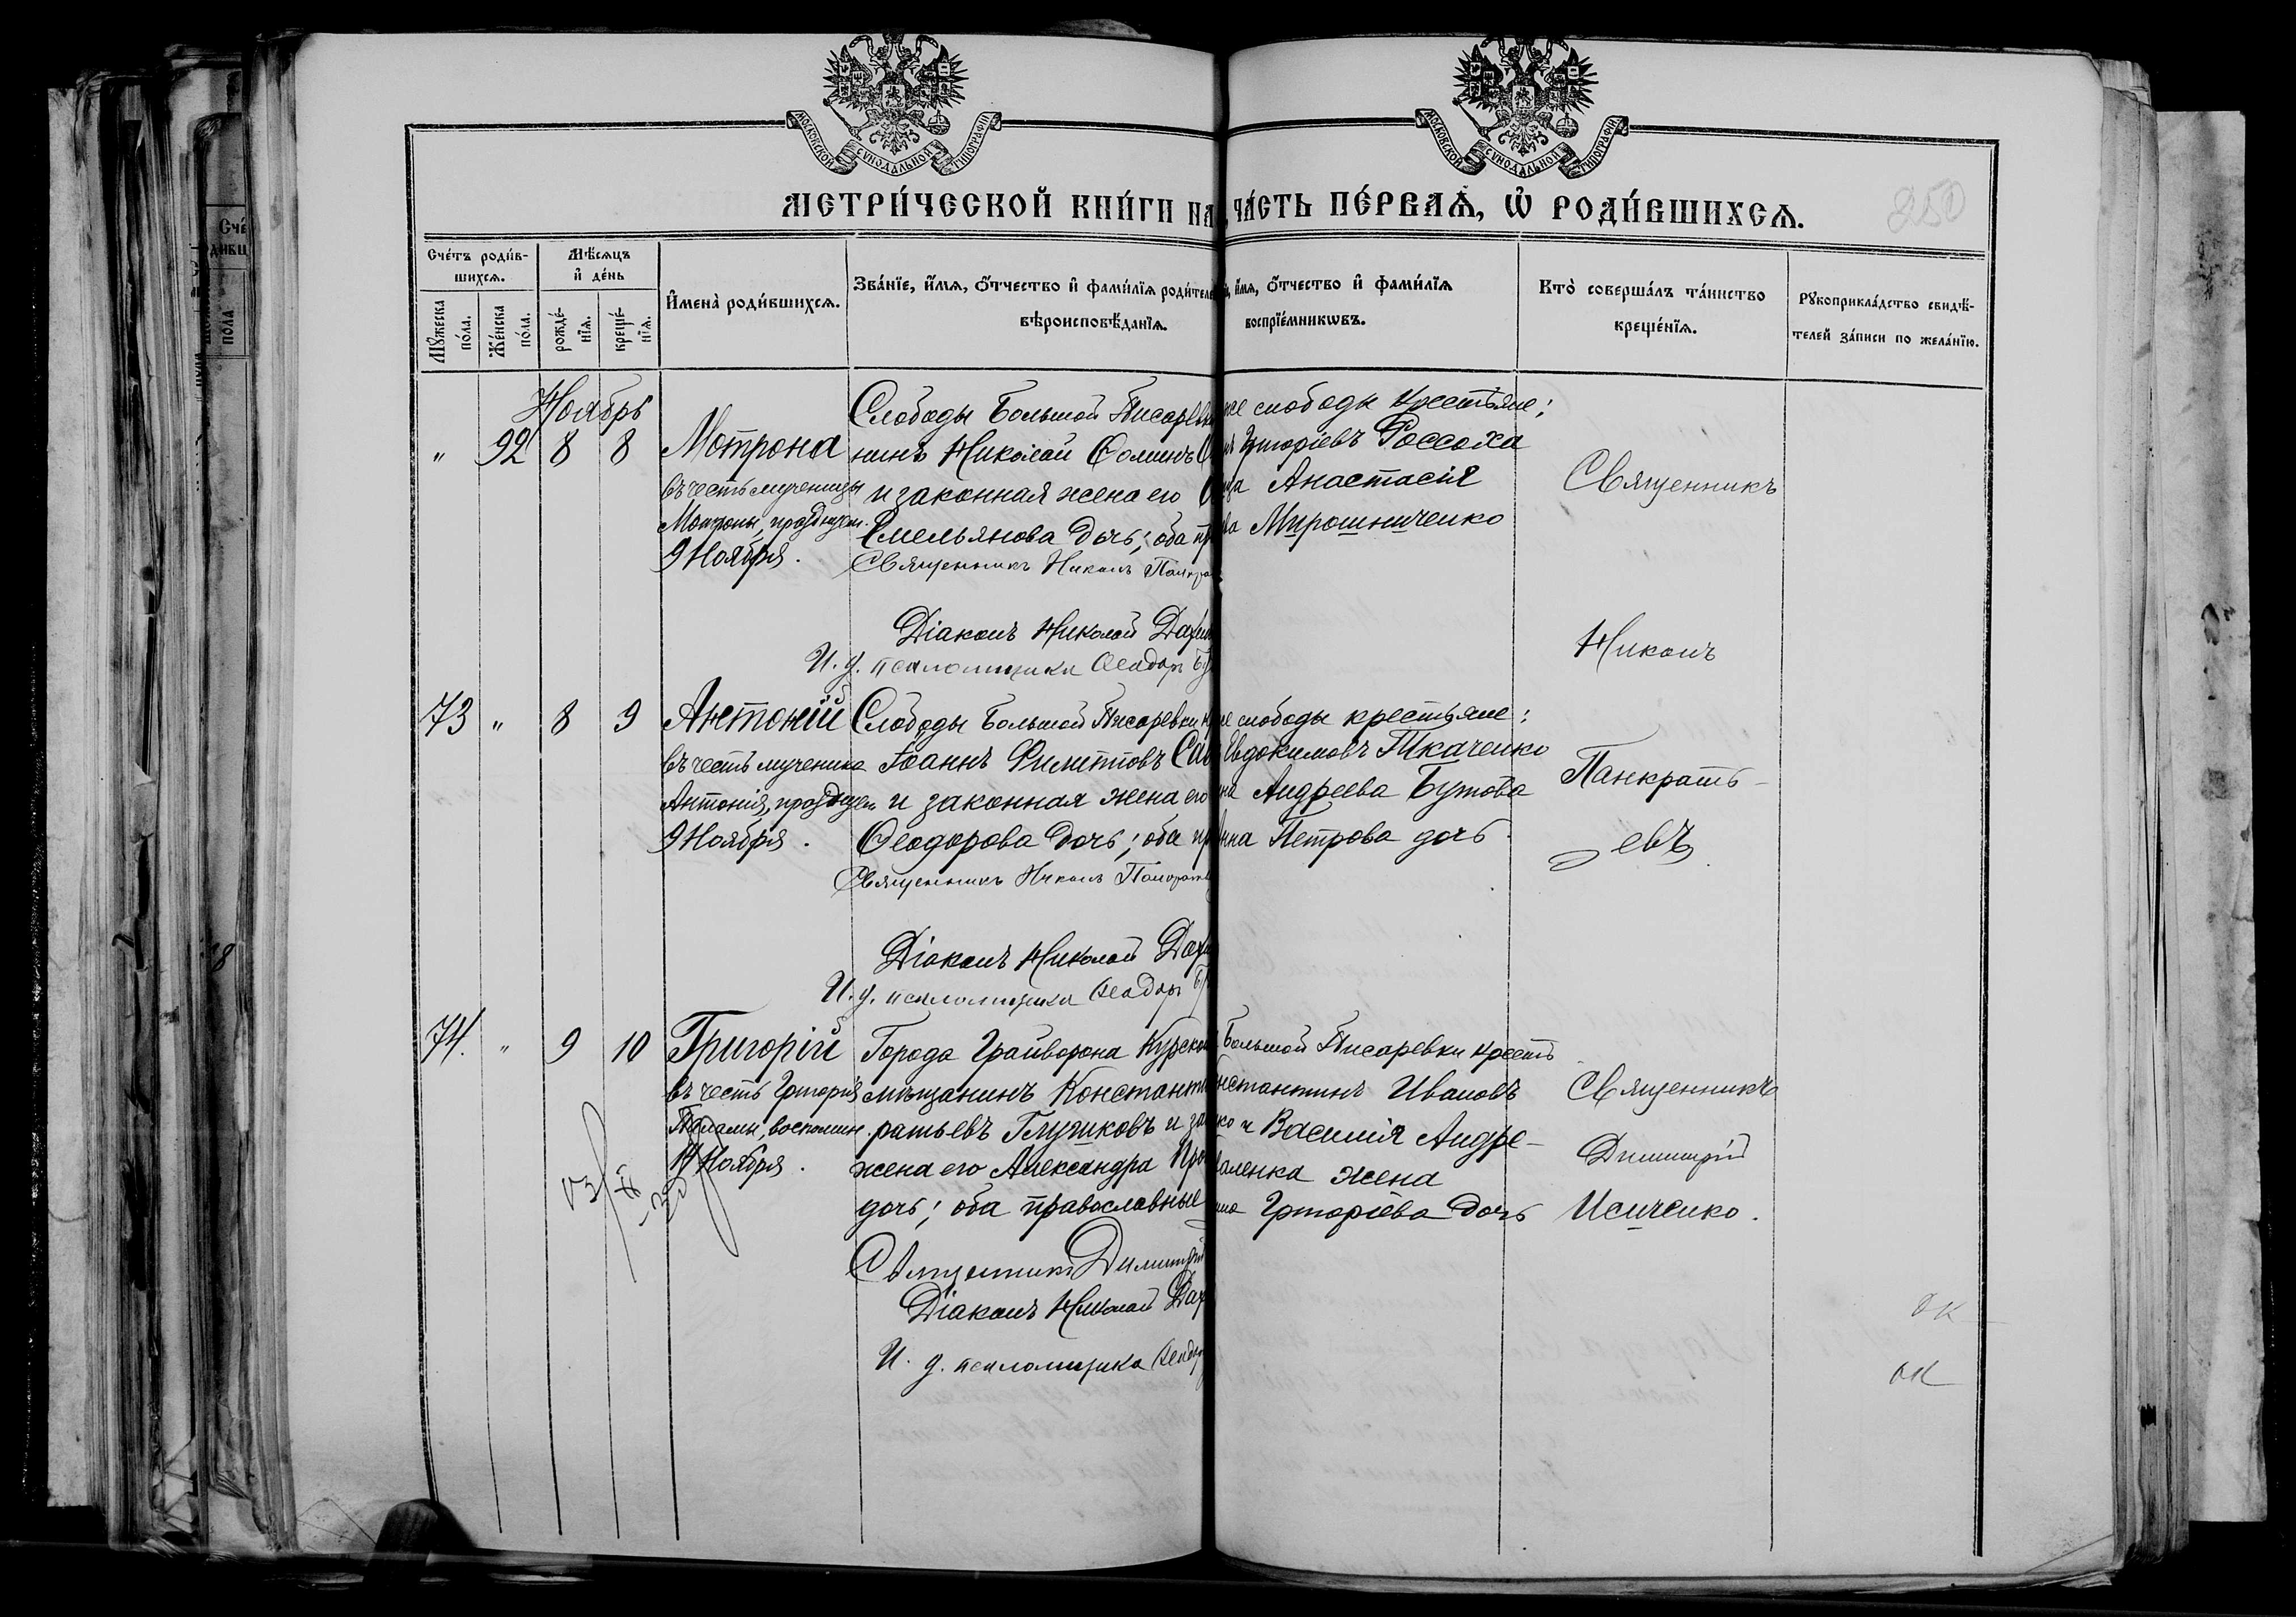 МОСКОВСКОЙ СУНОДАЛЬНОЙ ТИПОГРАФІИ
МОСКОВСКОЙ СУНОДАЛЬНОЙ ТИПОГРАФІИ
МЕТРИ́ЧЕСКОЙ КНИ́ГИ НА ЧА́СТЬ ПЕ́РВАѦ, Ѡ РОДИ́ВШИХСѦ.
250
Сче́тъ роди́в-
шихсѧ.
Мꙋжеска по́ла.
Же́нска по́ла.
Мѣ́сѧцъ
и҆ де́нь
рожде́-
нїѧ.
креще́-
нїѧ.
И҆мена̀ роди́вшихсѧ.
Зва́нїе, и҆́мѧ, ѻ҆́тчество и҆ фами́лїѧ роди́теле
вѣроисповѣ́данїѧ.
и҆́мѧ, ѻ҆́тчество и҆ фами́лїѧ
воспрїе́мникѡвъ.
Кто̀ соверша́лъ та́инство
креще́нїѧ.
Рꙋкоприкла́дство свидѣ́-
телей за́писи по жела́нїю.
Ноябрь
" 92 8 8
Мотрона
въ честь мученицы
Мотроны, празднуем.
9 Ноября.
Слободы Большой Писаревк
нинъ Николай Фоминъ
и законная жена его
Емельянова дочь; оба пр
Священникъ Никонъ Панкра
Діаконъ Николай
И. д. псаломщика Ѳеодоръ
же слободы крестьяне;
Григоріевъ Россоха
Анастасія
Мирошниченко
Священникъ
Никонъ
Панкрать-
евъ
73 " 8 9
Антоній
въ честь мученика
Антонія, празднуем
9 Ноября.
Слободы Большой Писаревки
Іоаннъ Филиповъ
и законная жена его
Ѳеодорова дочь; оба пр
Священникъ Никонъ
Діаконъ Николай
И. д. псаломщика Ѳеодоръ
же слободы крестьяне:
Евдокимовъ Ткаченко
на Андреева Бутова
Анна Петрова дочь
74. " 9 10
Григорій
въ честь Григорія
Паламы, воспомин.
14 Ноября.
Города Грайворона Курской
мѣщанинъ Констант
ратьевъ Глушковъ и за
жена его Александра Про
дочь; оба православные
Священникъ Димитрій
Діаконъ Николай
И. д. псаломщика Ѳеодоръ
Большой Писаревки крест
нстантинъ Ивановъ
ко и Василія Андре-
валенка жена
Григоріева дочь
Священникъ
Димитрій
Исиченко.
ок
ок